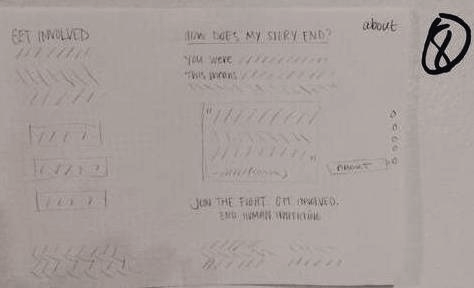 about
8
GET INVOLVED
HOW DOES MY STORY END?
You were
This means
ABOUT
JOIN THE FIGHT. GET INVOLVED.
END HUMAN TRAFFICKING